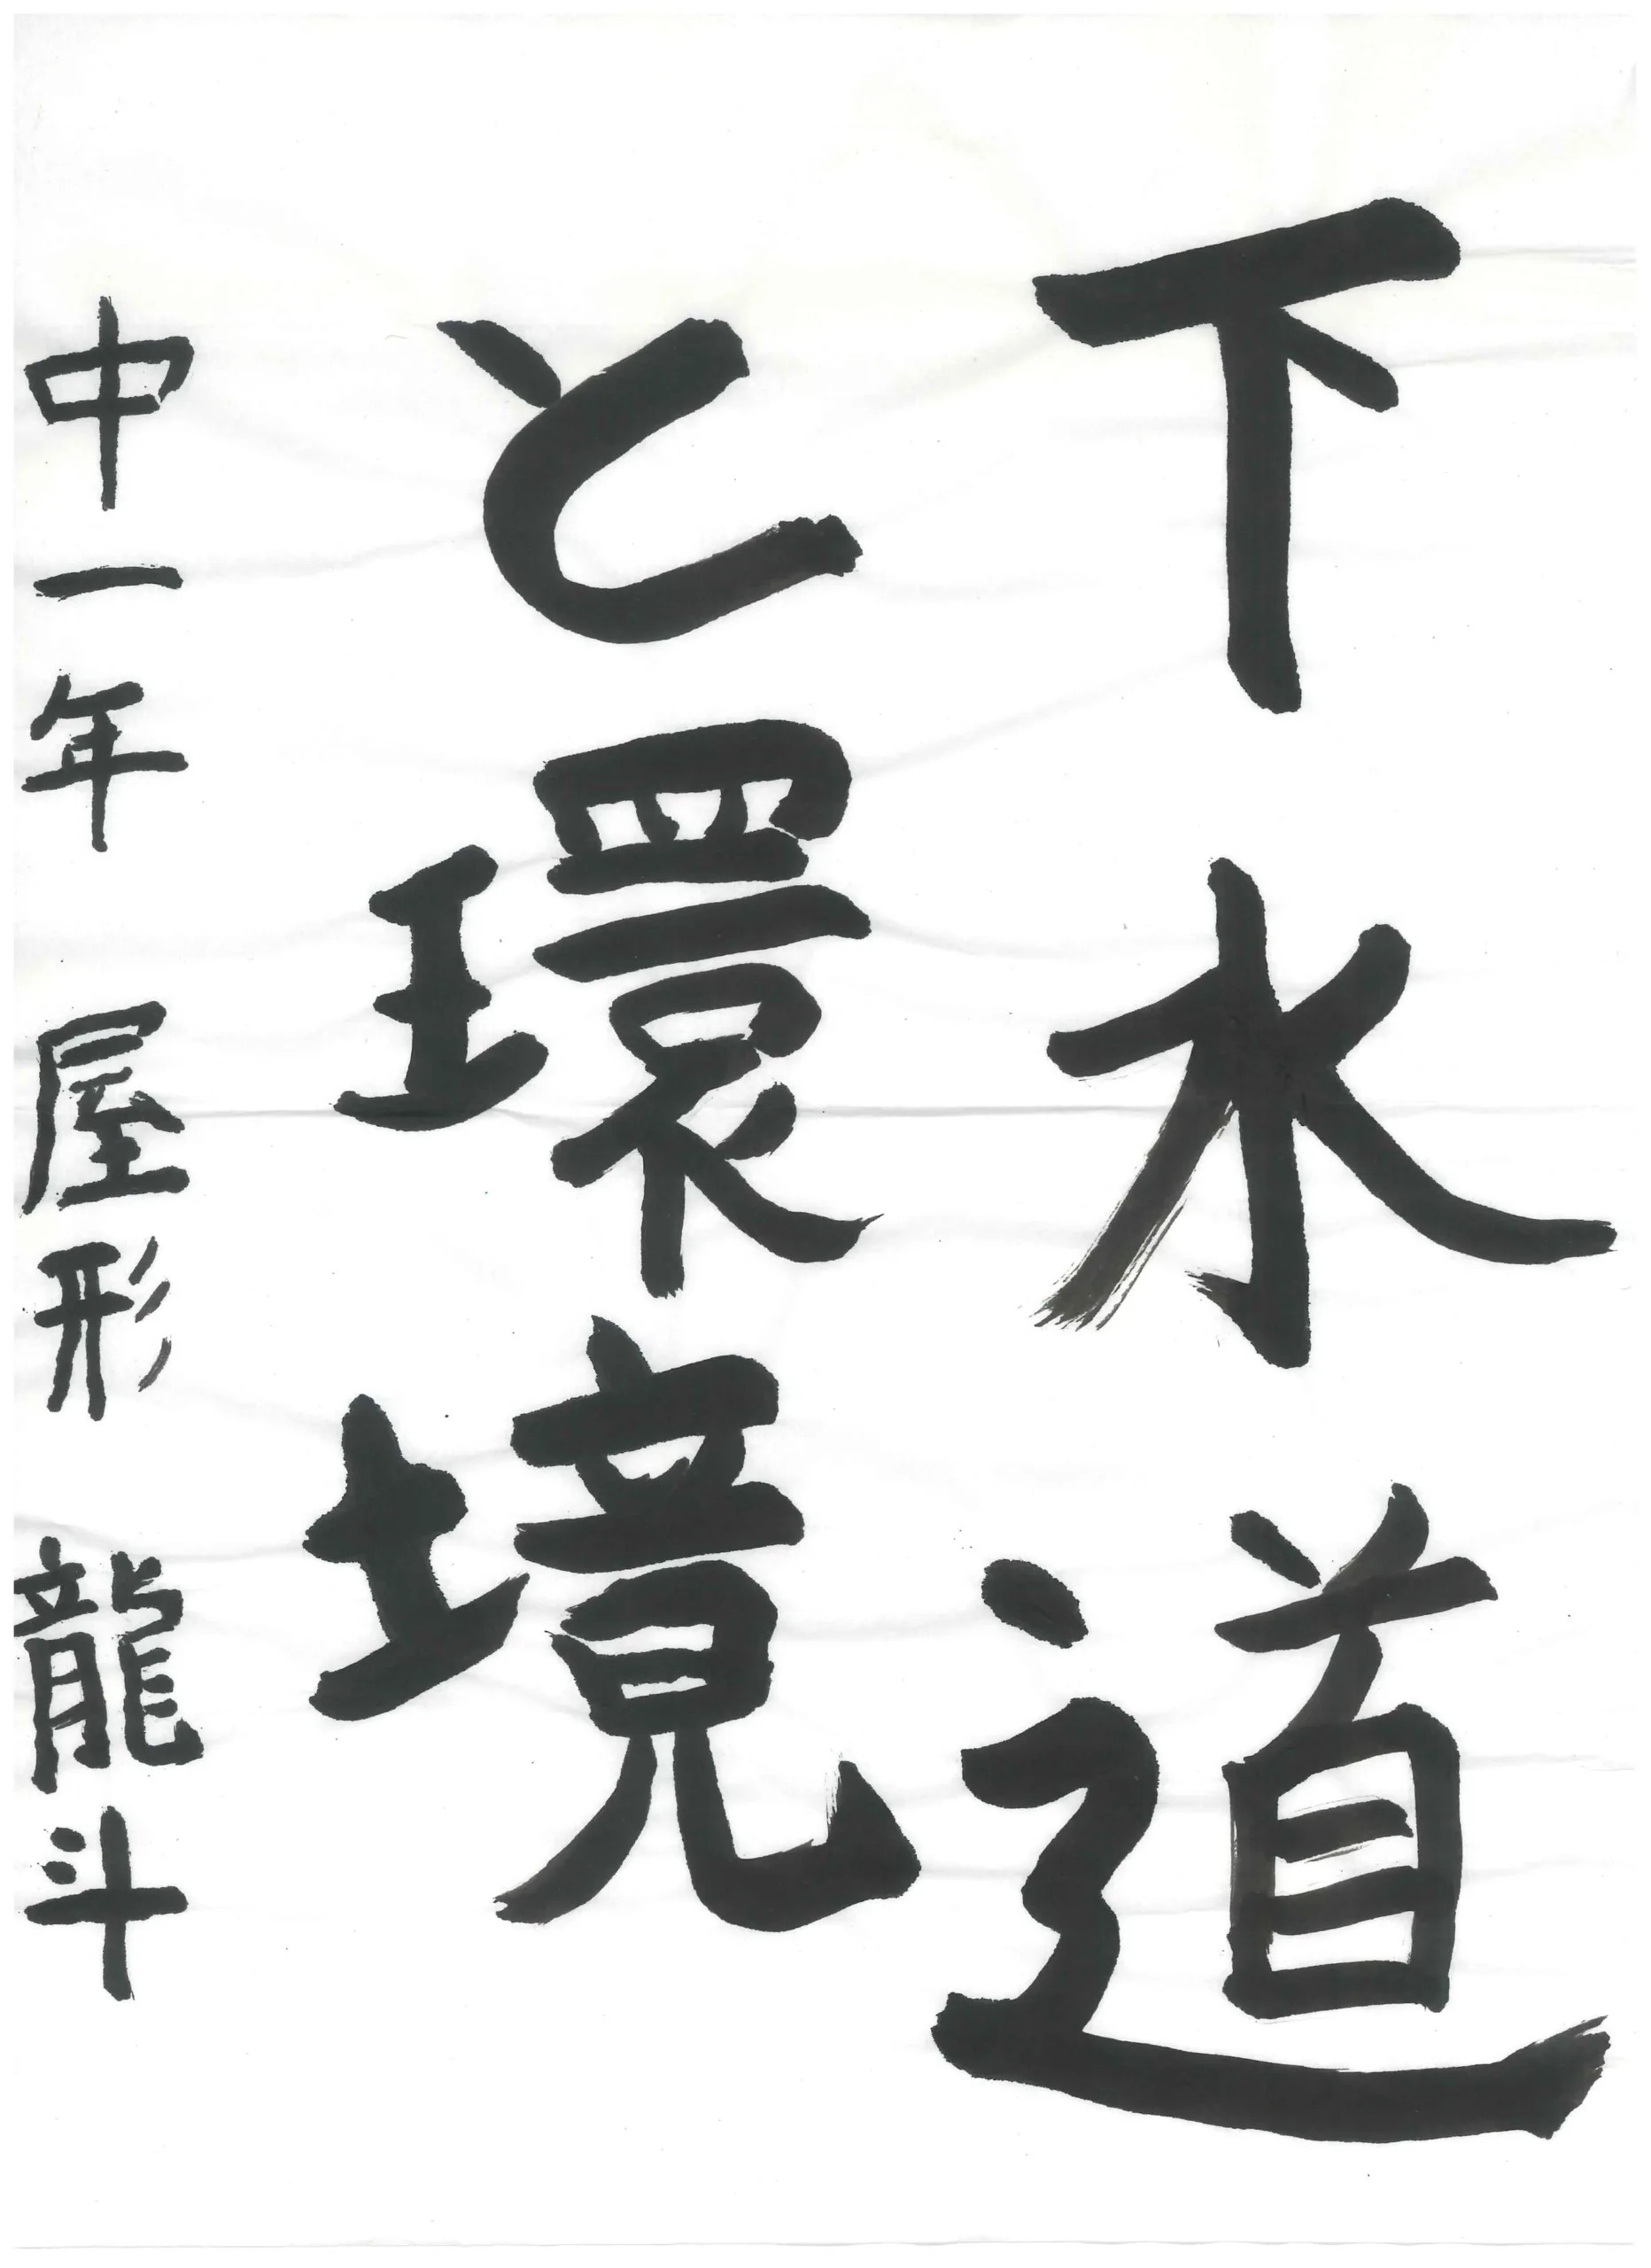 下水道
と環境
中一年 屋形 龍斗